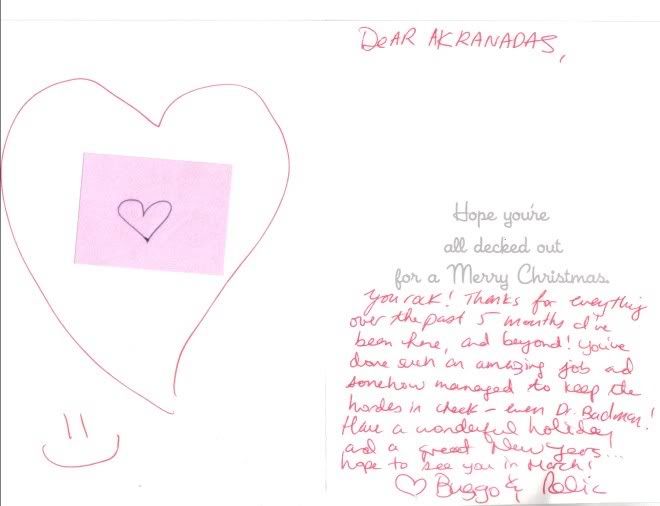 DeAR AKRANADAS,
Hope you're
all decked out
for a Merry Christmas.
You rock! Thanks for everything
over the past 5 months I've
been here, and beyond! You've
done such an amazing job and
somehow managed to keep the
hordes in check - even Dr. Badman!
Have a wonderful holiday
and a great New Years...
hope to see you in March!
♡ Buggo & Relic